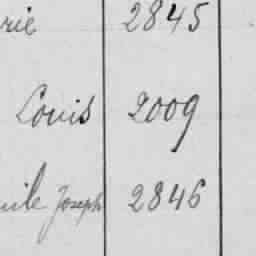 rie 2845
Louis 2009
ile Joseph 2846